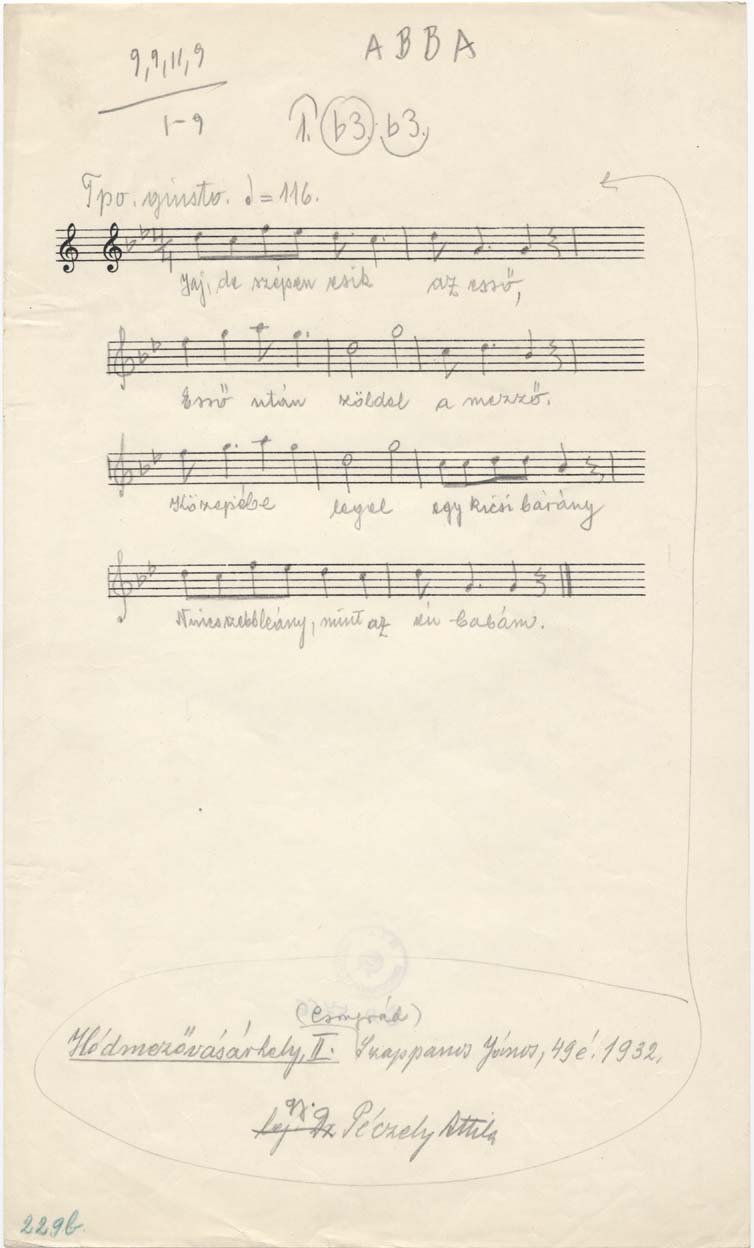 9,9,11,9
ABBA
1-9
1. b3. b3.
Tpo. giusto. = 116.
4/4
Jaj, de szépen esik az esső,
Esső után zöldel a mezző.
Közepébe legel egy kicsi bárány
Nincs szebb leány, mint az én babám.
(Csongrád)
Hódmezővásárhely, II. Szappanos János, 49 é. 1932.
gy.
Péczely Attila
229b.